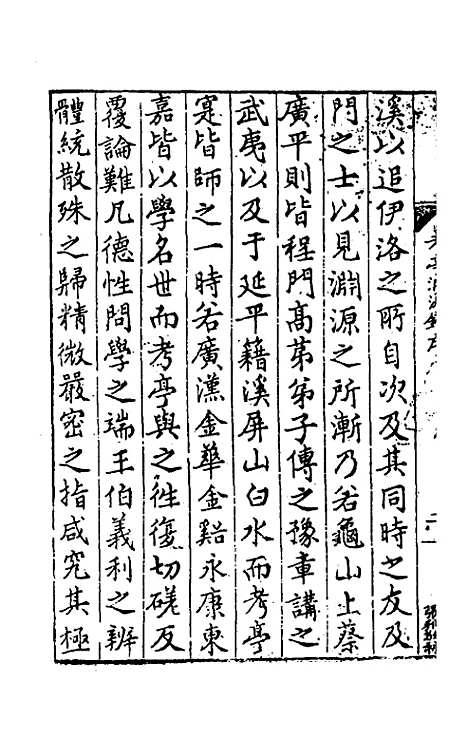 溪以追伊洛之所自次及其同時之友及
門之士以見淵源之所漸乃若龜山上蔡
廣平則皆程門髙苐弟子傳之豫章講之
武夷以及于延平籍溪屏山白水而考亭
寔皆師之一時若廣漢金華金谿永康東
嘉皆以學名世而考亭與之徃復切磋反
覆論難凡德性問學之端王伯義利之辨
體統散殊之歸精微嚴密之指咸究其極